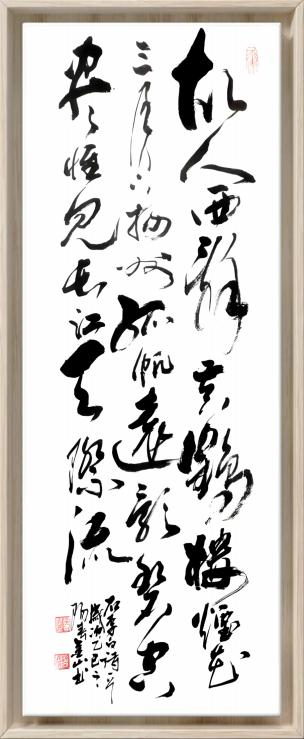 故人西辭黃鶴樓煙花
三月下揚州孤帆遠影碧空
盡惟見長江天際流
李白詩
歲次乙巳
山書